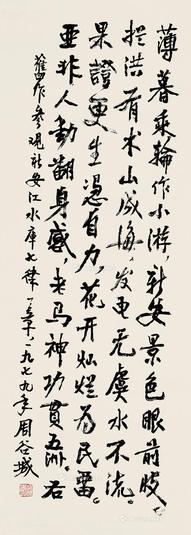 薄暮乘轮作小游，新安景色眼前收。
拦洪有术山成海，发电无虞水不流。
果证更生凭自力，花开灿烂为民留。
亚非人动翻身感，老马神功贯五洲。右
旧作参观新安江水库七律一首 一九七九年 周谷城